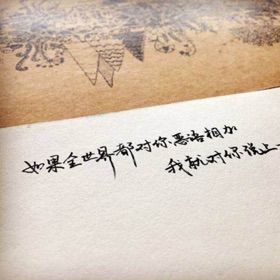 如果全世界都对你恶语相加
我就对你说上